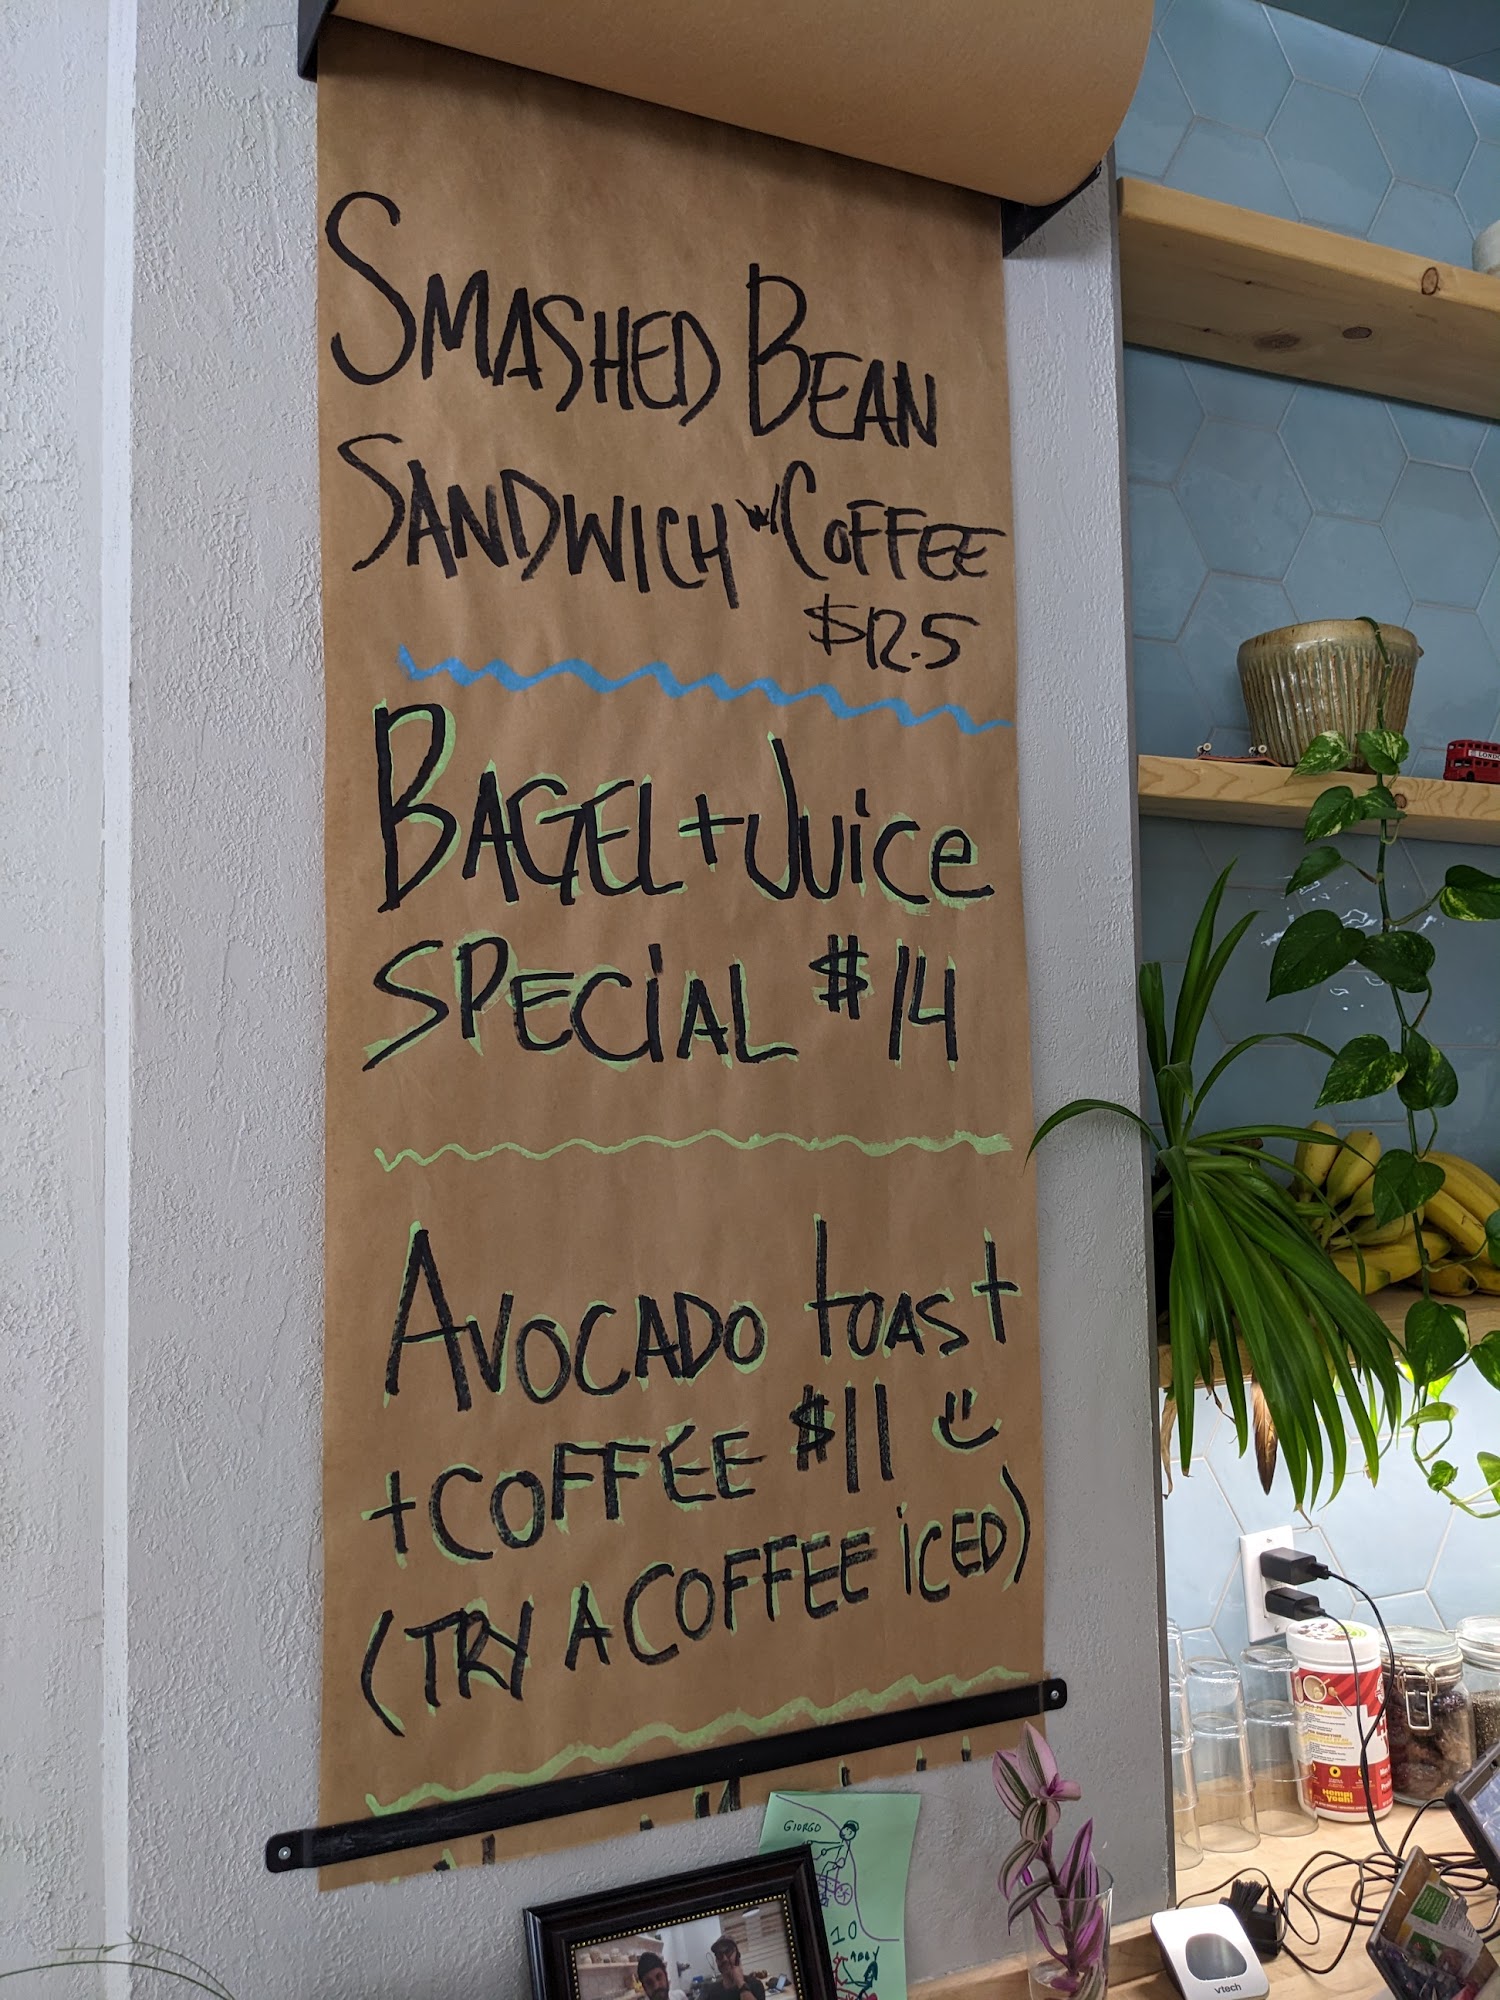 SMASHED BEAN
SANDWICH w/ COFFEE
$12.5
BAGEL + JUICE
SPECIAL $14
AVOCADO toast
+ COFFEE $11
(TRY A COFFEE iCED)
LONDON
GIORGO
10
ABBY
Hemp
Yeah!
vtech